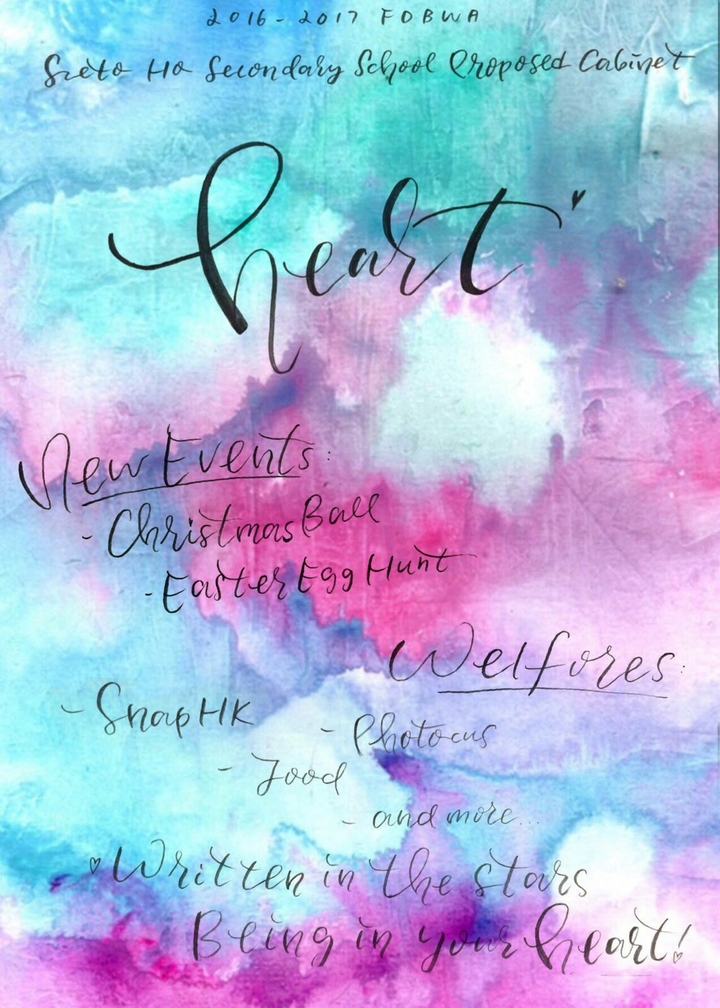 2016-2017 FDBWA
Szeto Ho Secondary School Proposed Cabinet
heart
New Events:
- Christmas Ball
- Easter Egg Hunt
Welfares:
- SnapHK
- Photocus
- Food
- and more...
Written in the stars
Being in your heart!